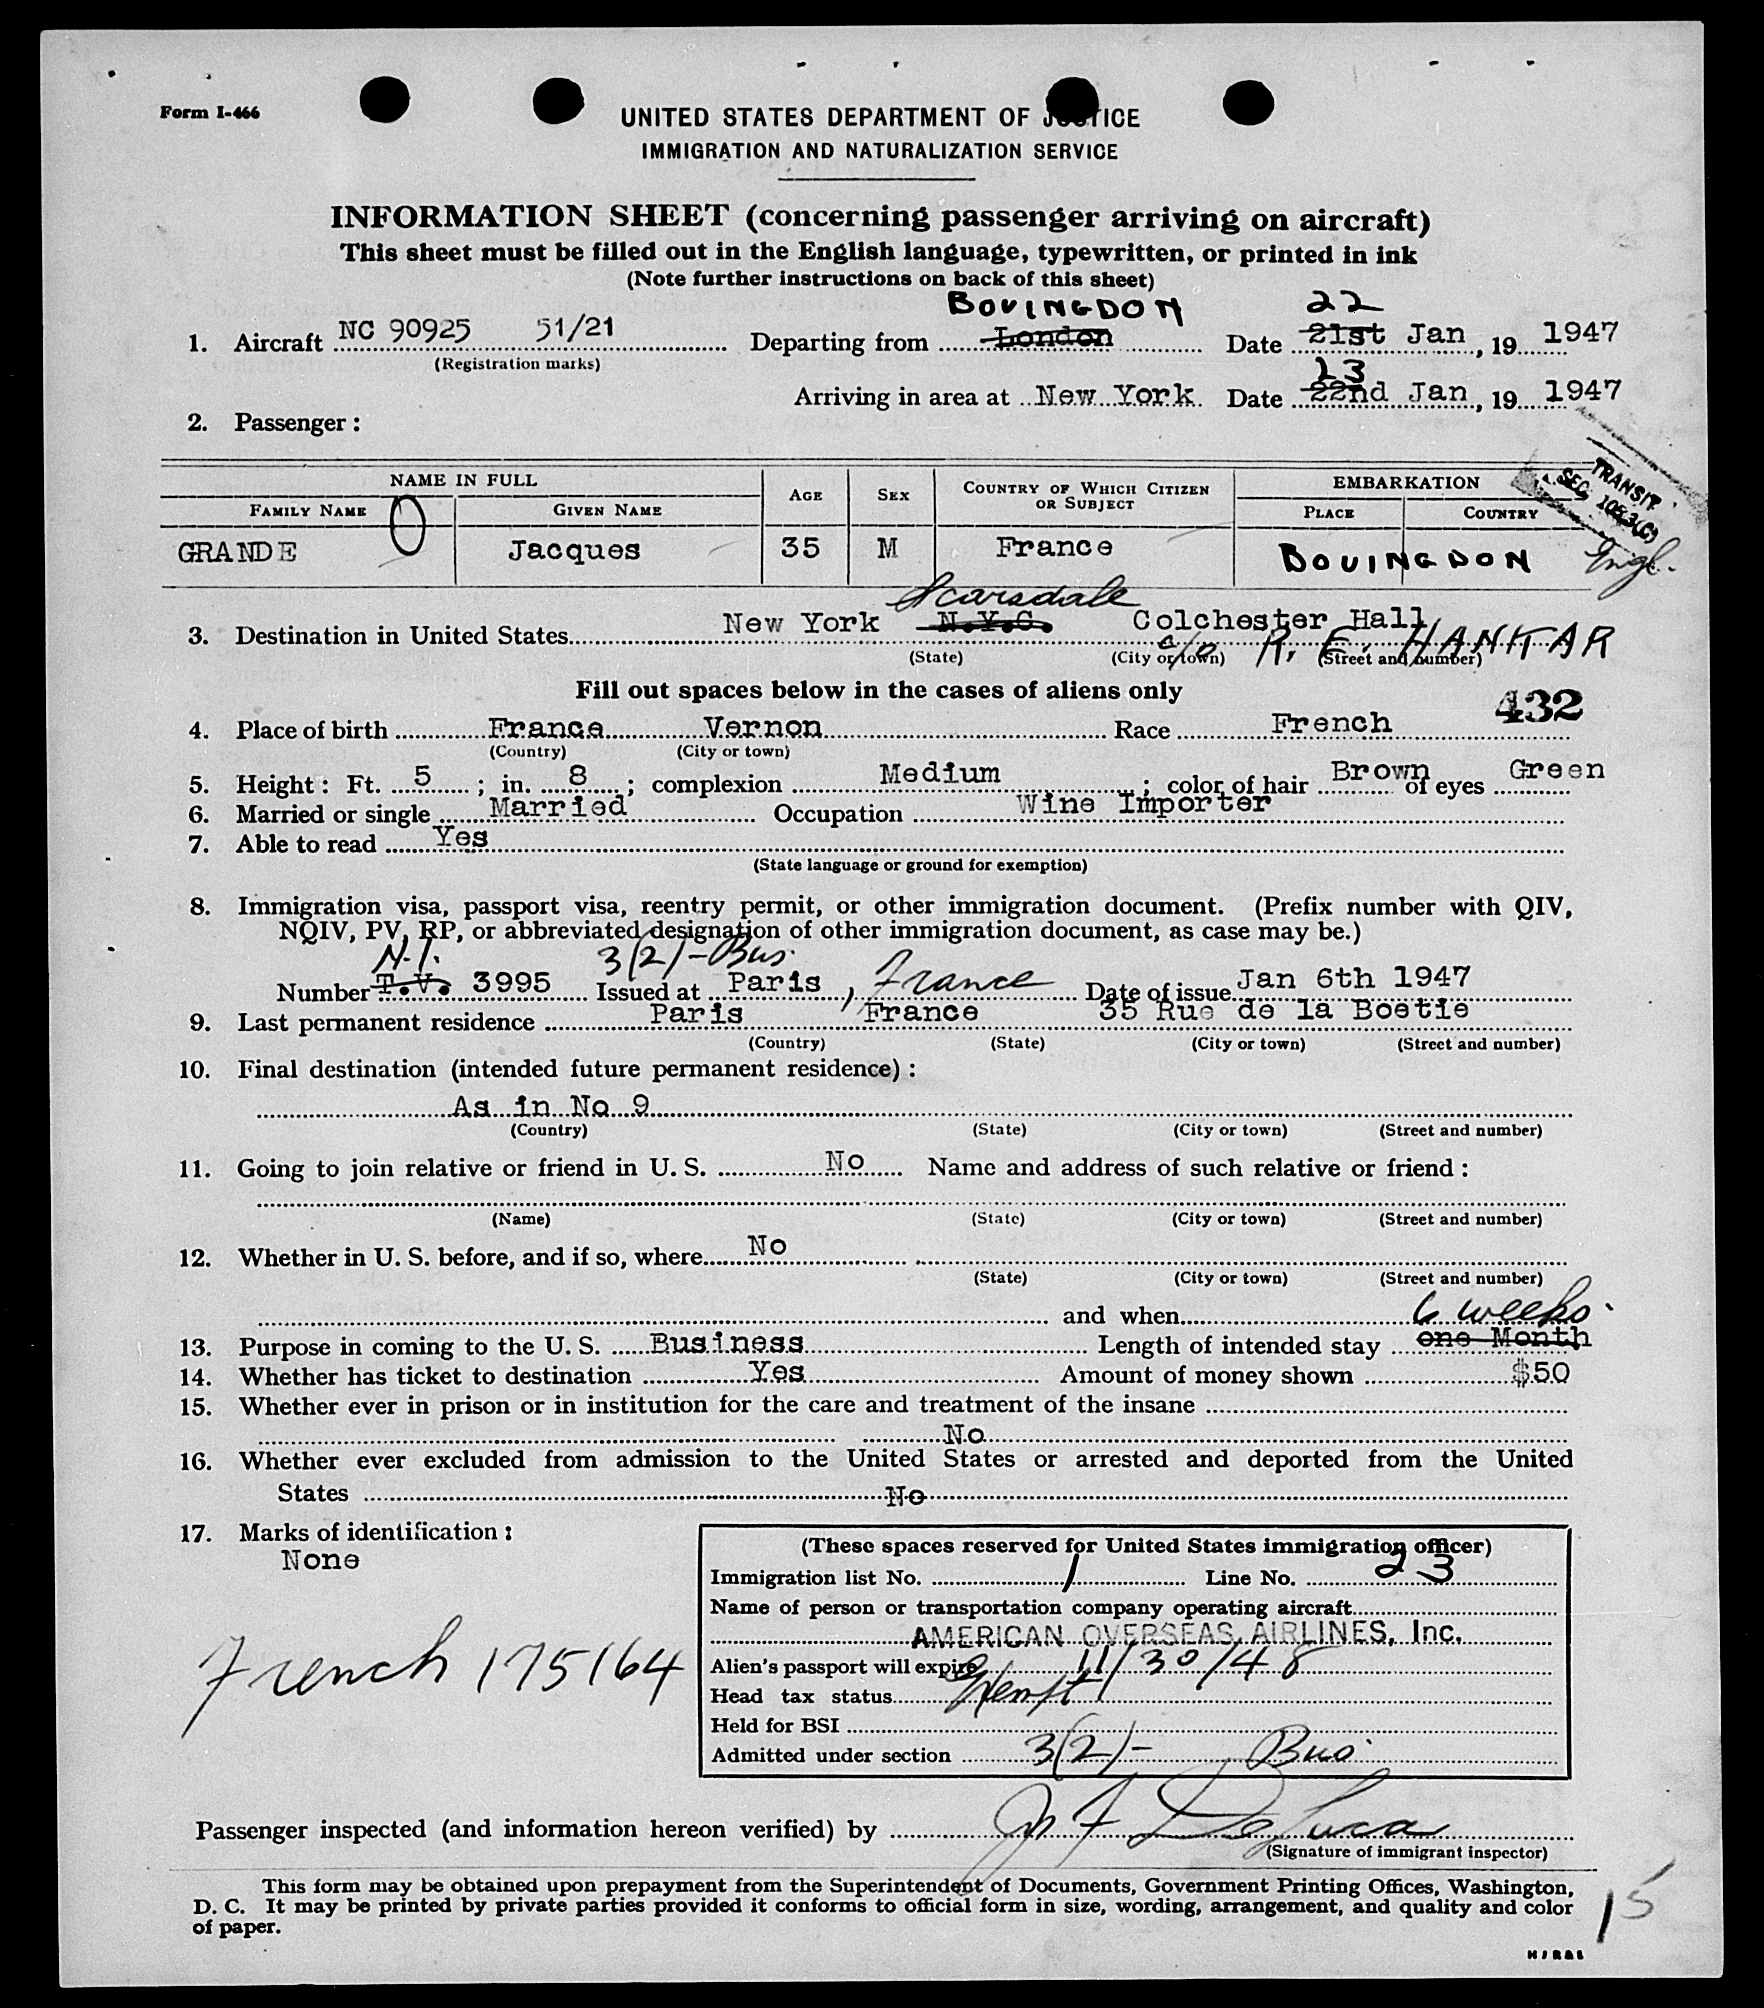 Form I-466
UNITED STATES DEPARTMENT OF JUSTICE
IMMIGRATION AND NATURALIZATION SERVICE
INFORMATION SHEET (concerning passenger arriving on aircraft)
This sheet must be filled out in the English language, typewritten, or printed in ink
(Note further instructions on back of this sheet)
BOVINGDON 22
1. Aircraft NC 90925 51/21 Departing from London Date 21st Jan, 19 1947
(Registration marks)
23
Arriving in area at New York Date 22nd Jan, 19 1947
2. Passenger:
TRANSIT
SEC 10533(C)
NAME IN FULL AGE SEX COUNTRY OF WHICH CITIZEN OR SUBJECT EMBARKATION
FAMILY NAME GIVEN NAME PLACE COUNTRY
GRANDE Jacques 35 M France BOVINGDON Engl.
Scarsdale
3. Destination in United States New York N.Y.C. Colchester Hall
c/o R. E. HANKAR
(State) (City or town) (Street and number)
Fill out spaces below in the cases of aliens only
432
4. Place of birth France Vernon Race French
(Country) (City or town)
5. Height: Ft. 5; in. 8; complexion Medium; color of hair Brown of eyes Green
6. Married or single Married Occupation Wine Importer
7. Able to read Yes
(State language or ground for exemption)
8. Immigration visa, passport visa, reentry permit, or other immigration document. (Prefix number with QIV,
NQIV, PV, RP, or abbreviated designation of other immigration document, as case may be.)
N.I. 3(2)-Bus.
Number T.V. 3995 Issued at Paris, France Date of issue Jan 6th 1947
9. Last permanent residence Paris France 35 Rue de la Boetie
(Country) (State) (City or town) (Street and number)
10. Final destination (intended future permanent residence):
As in No 9
(Country) (State) (City or town) (Street and number)
11. Going to join relative or friend in U. S. No Name and address of such relative or friend:
(Name) (State) (City or town) (Street and number)
12. Whether in U. S. before, and if so, where No
(State) (City or town) (Street and number)
and when
6 weeks.
13. Purpose in coming to the U. S. Business Length of intended stay one Month
14. Whether has ticket to destination Yes Amount of money shown $50
15. Whether ever in prison or in institution for the care and treatment of the insane
No
16. Whether ever excluded from admission to the United States or arrested and deported from the United
States No
17. Marks of identification:
None
French 175164
(These spaces reserved for United States immigration officer)
Immigration list No. 1 Line No. 23
Name of person or transportation company operating aircraft
AMERICAN OVERSEAS AIRLINES, Inc.
Alien's passport will expire 11/30/48
Head tax status Exempt
Held for BSI
Admitted under section 3(2)- Bus.
Passenger inspected (and information hereon verified) by J F DeLuca
(Signature of immigrant inspector)
This form may be obtained upon prepayment from the Superintendent of Documents, Government Printing Offices, Washington,
D. C. It may be printed by private parties provided it conforms to official form in size, wording, arrangement, and quality and color
of paper.
15